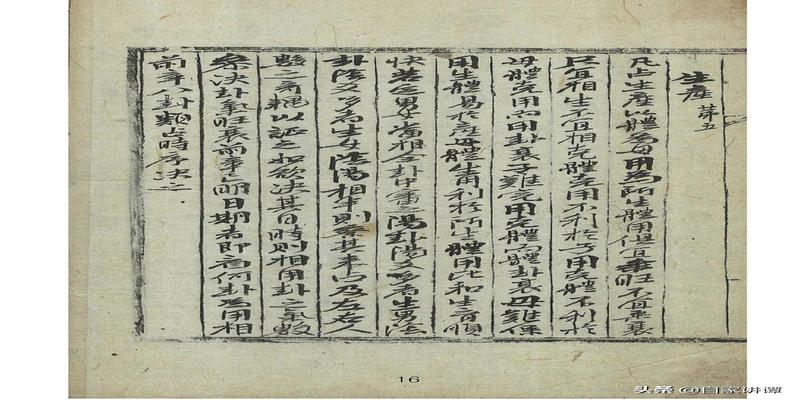 生產 苐五
凡占生產以體為母用為所生體用俱宜乘旺不宜乘衰
只宜相生不宜相克體克用不利於子用克體不利於
母體克用而用卦衰子難完用克體而體卦衰母難保
用生體易於產母體生用利於所生體用比和生育順
快若 男女當相全卦中審之陽卦陽爻多者生男陰
卦陰爻多者生女陰陽相半則察其來占及左右人
數之奇耦以証之如欲決其日時則相用卦之氣數
叅決卦氣旺衰而事占明日期者即看何卦為用相
前章八卦類占時序決之
16
头条 @自家讲谭